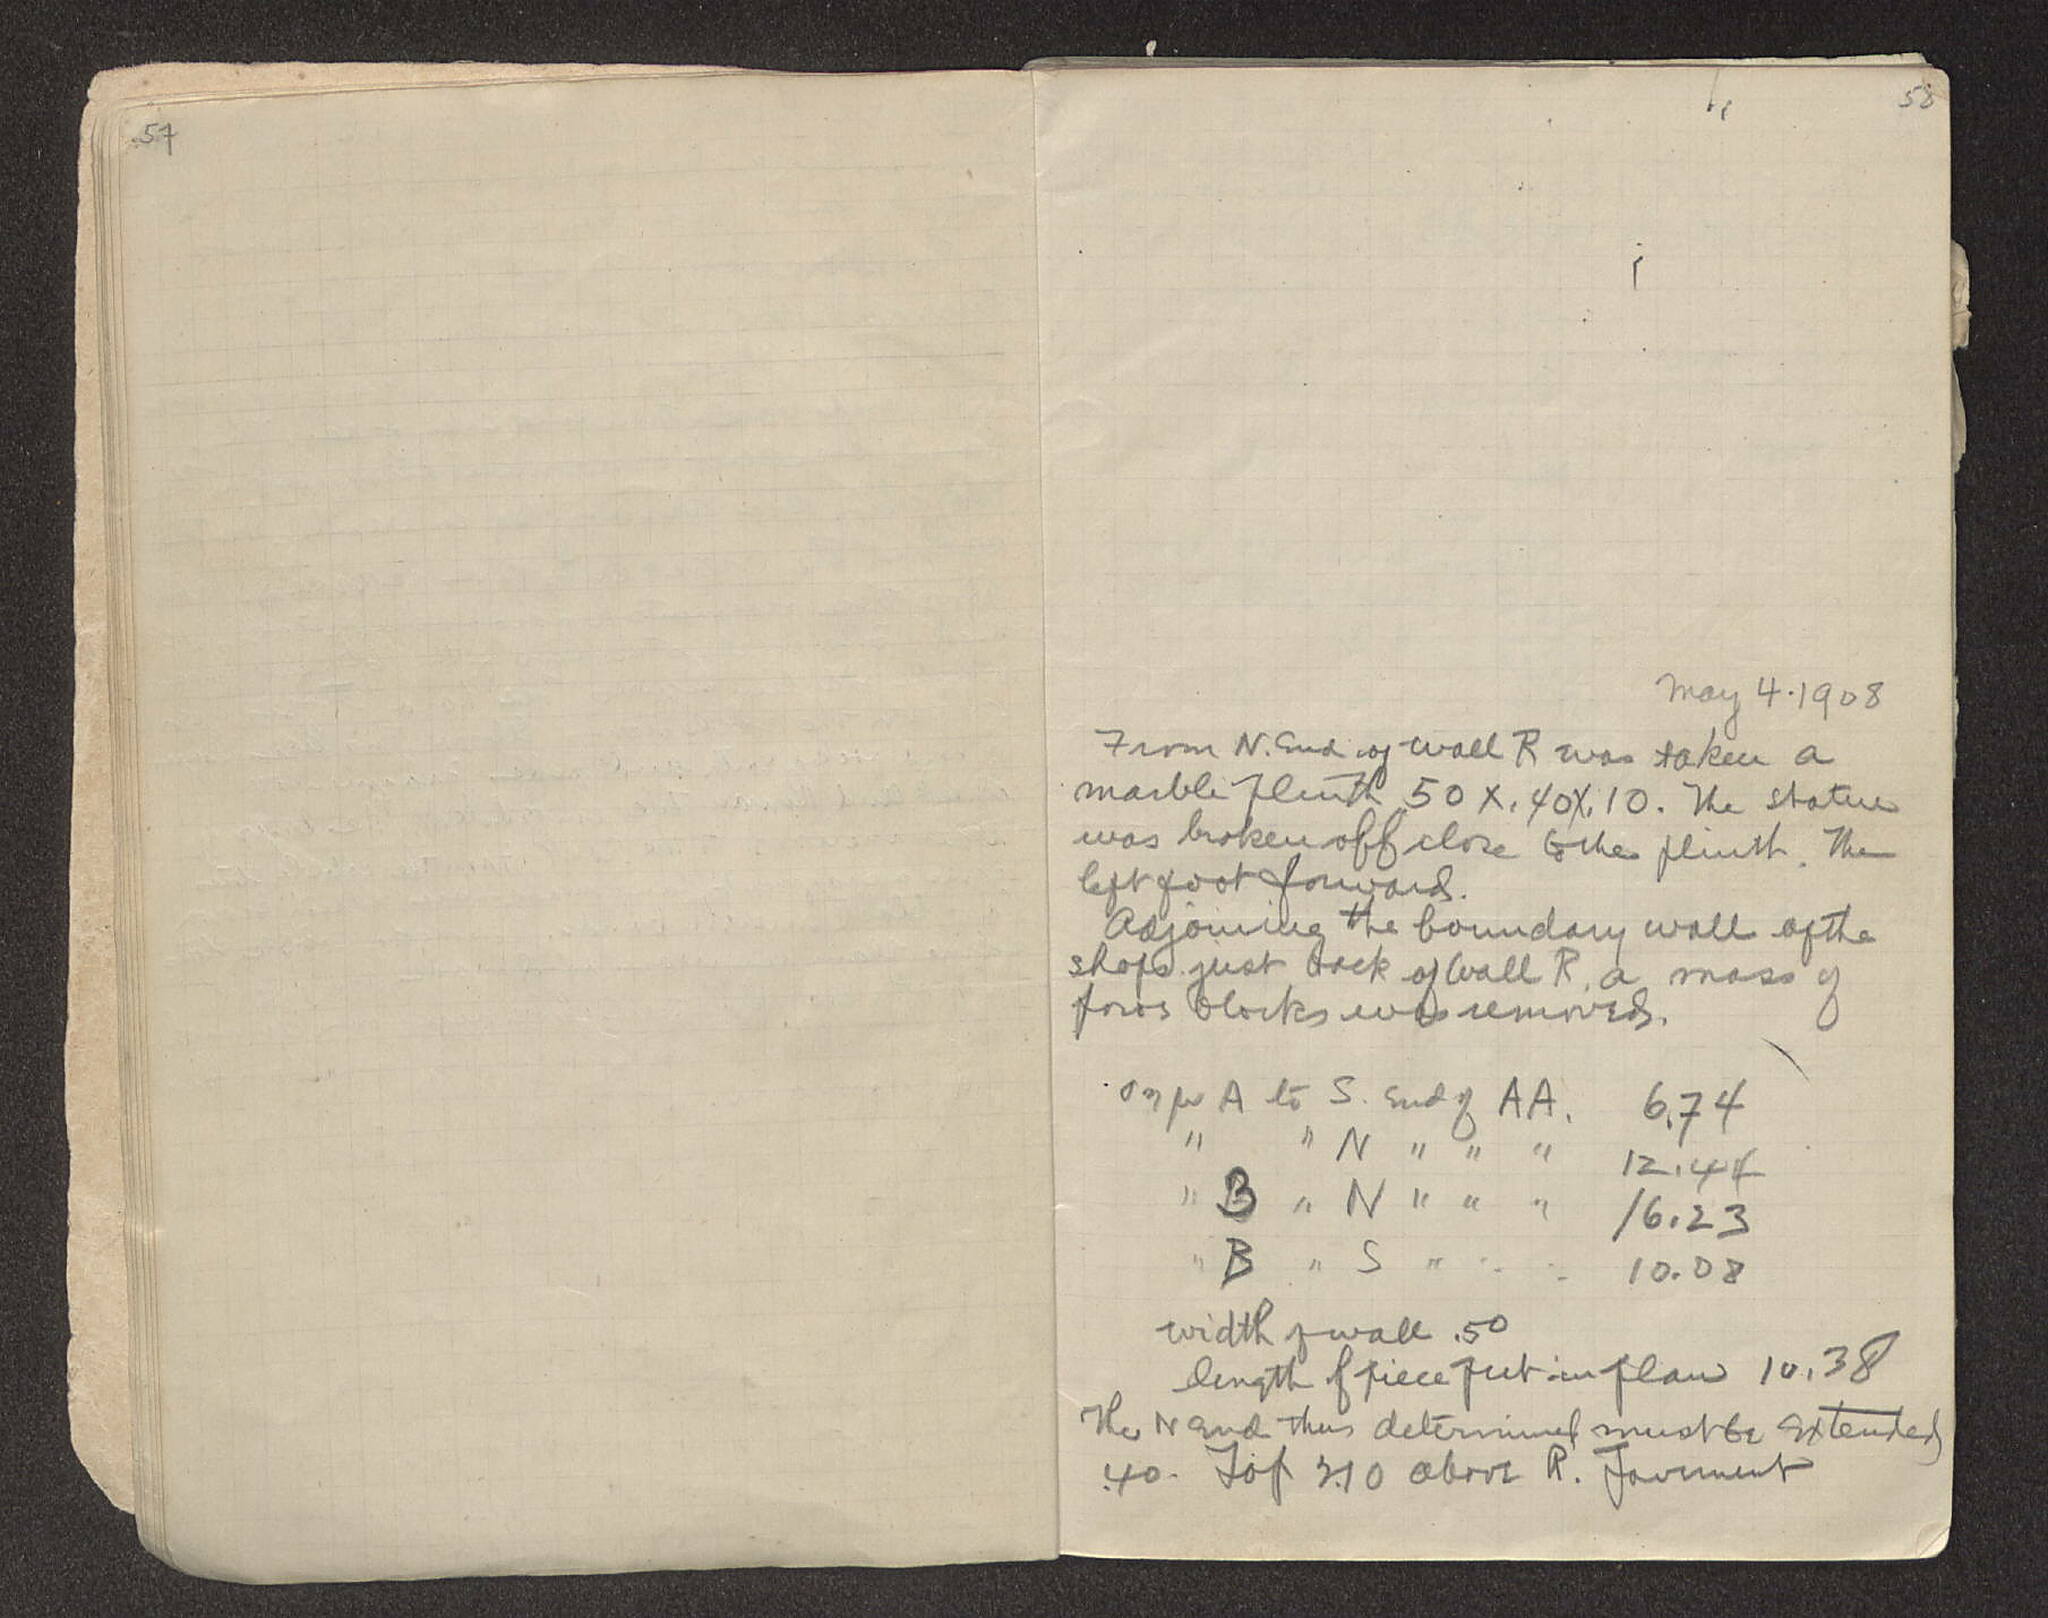 57
58
May 4. 1908
From N. End of wall R was taken a
marble plinth .50 X .40 X .10. The statue
was broken off close to the plinth. The
left foot forward.
Adjoining the boundary wall of the
shops just back of Wall R. a mass of
poros blocks was removed.
A to S. End of AA. 6.74
" " N " " " 12.44
" B " N " " " 16.23
" B " S " " " 10.08
width of wall .50
length of piece put in plan 10.38
The N End thus determined must be extended
.40. Top 3.10 above R. Pavement